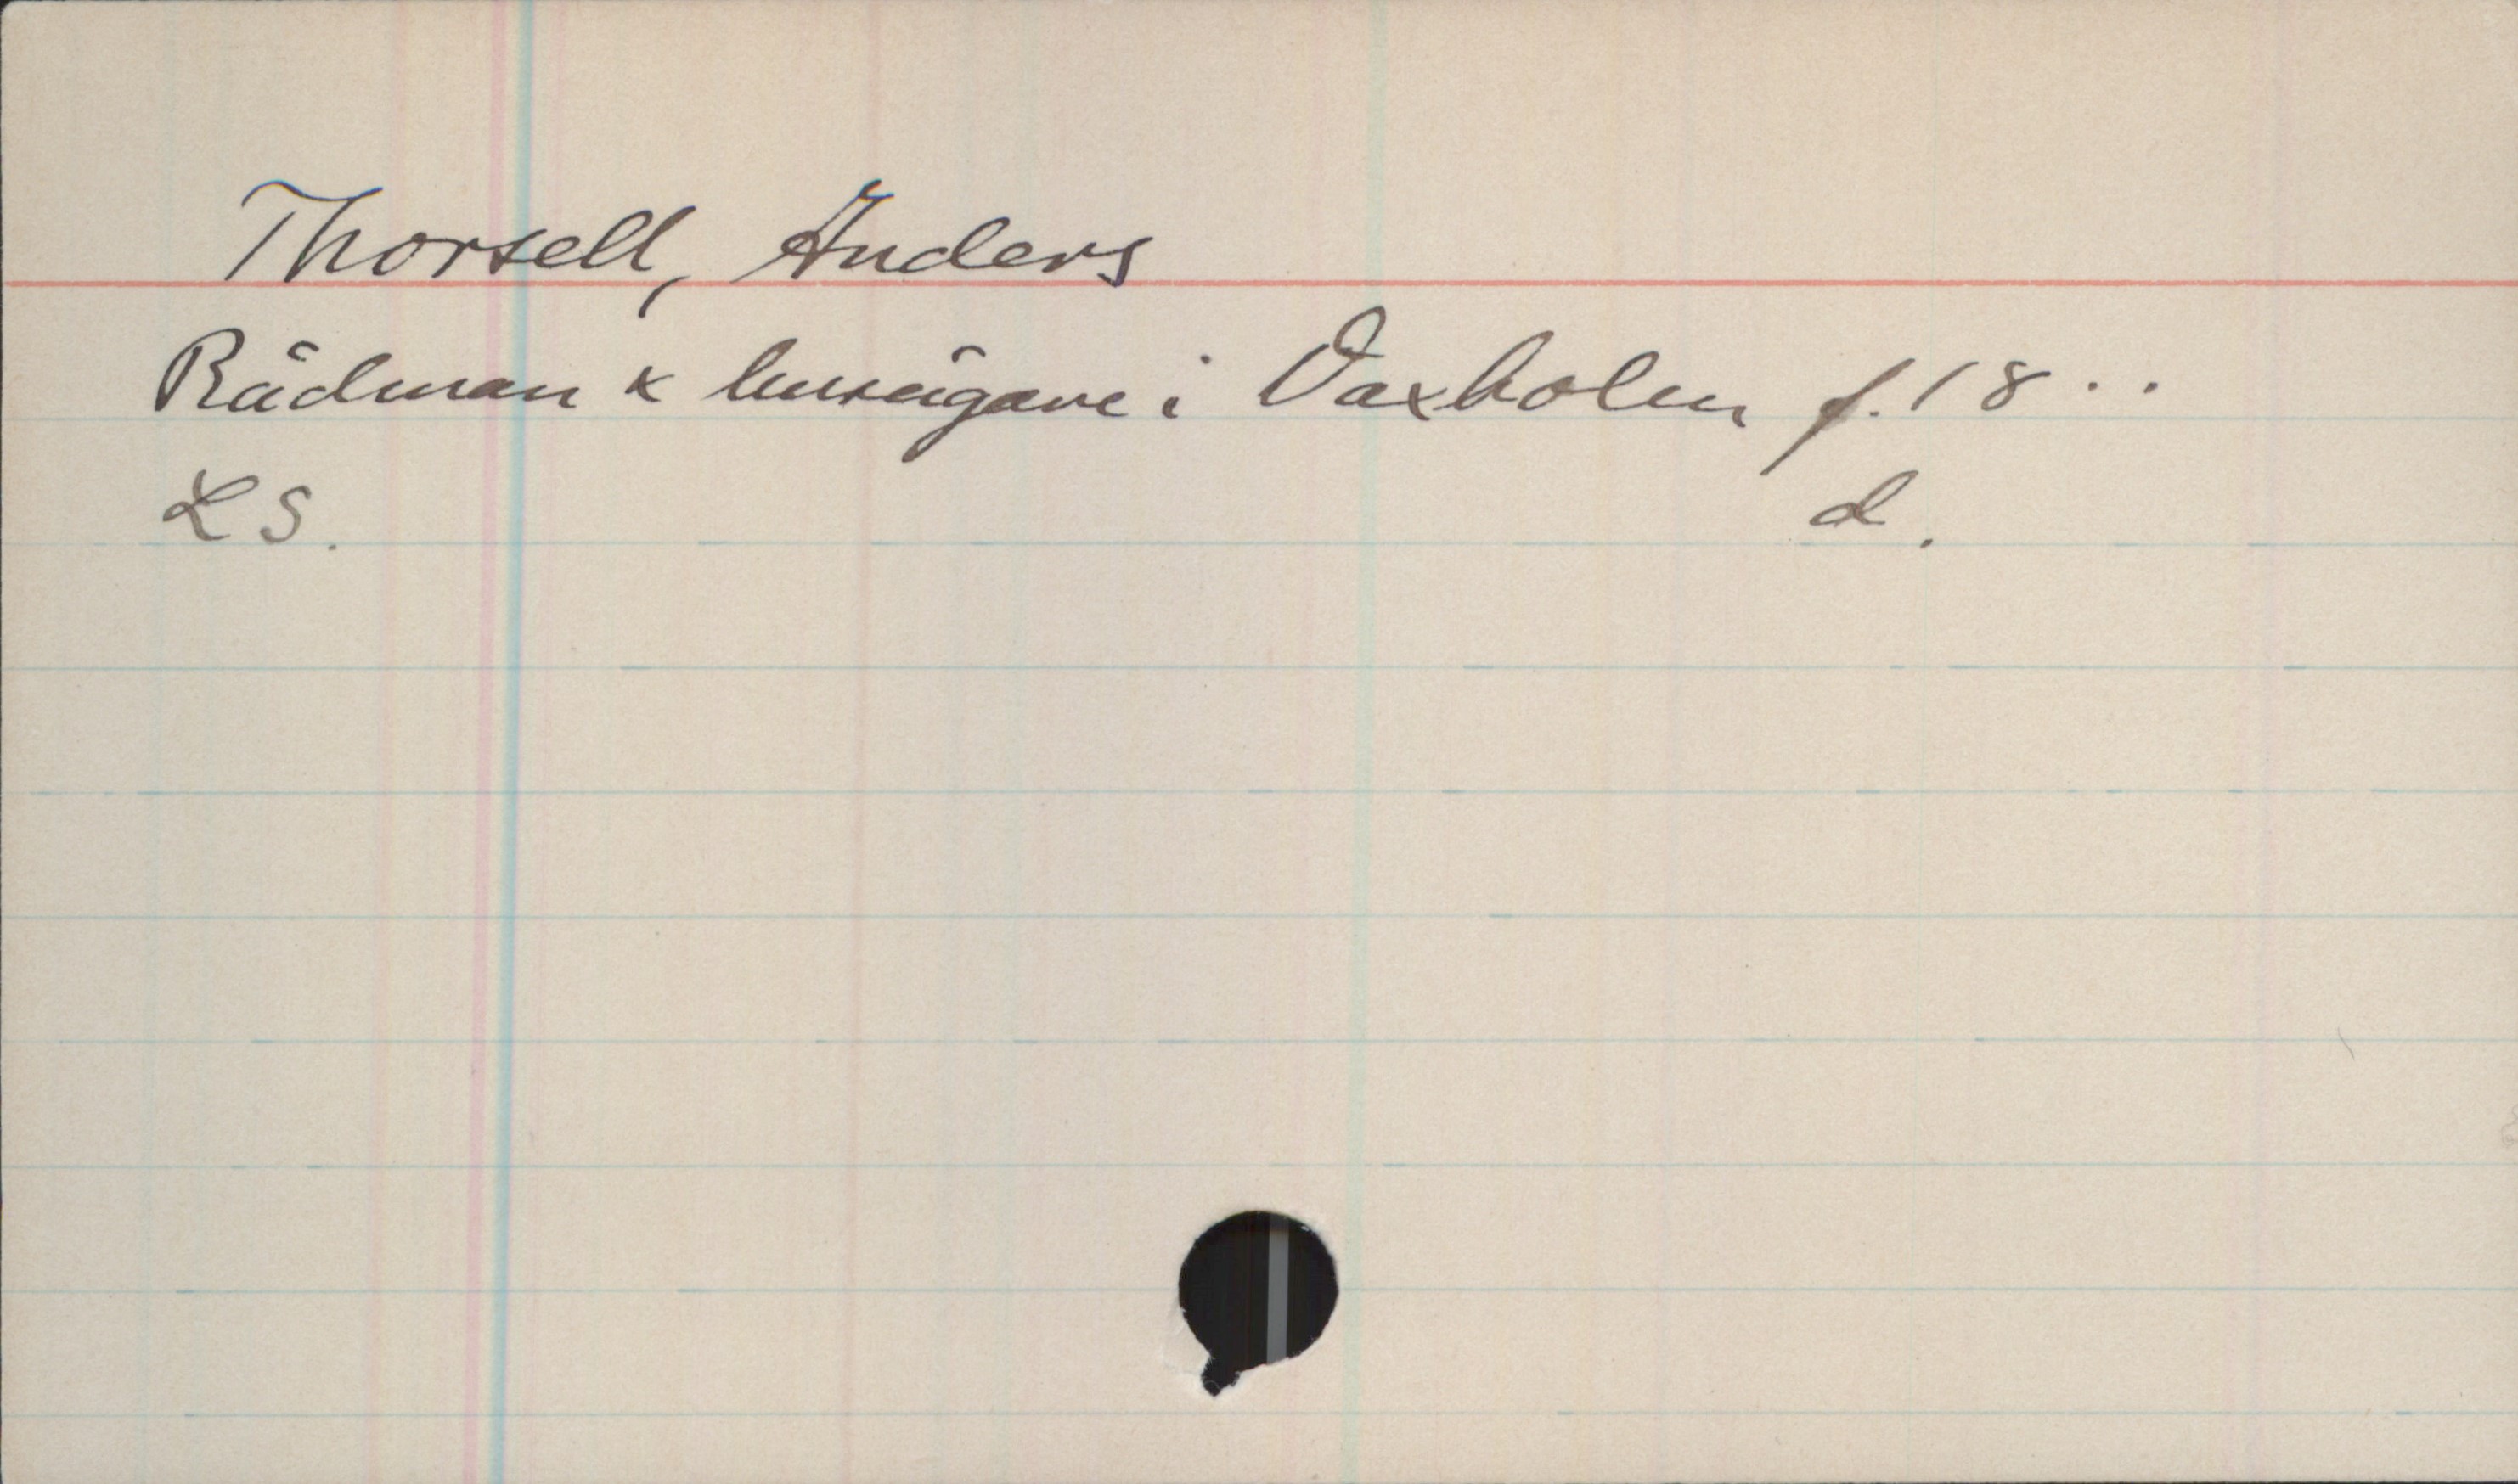 Thorsell, Anders
Rådman & husägare i Vaxholm f. 18..
LS. d.